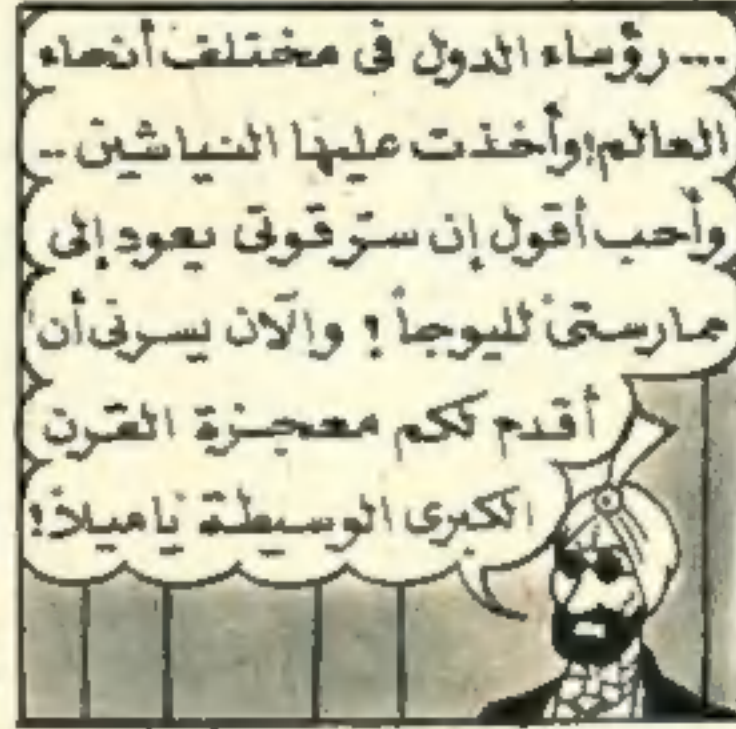 ... رؤساء الدول فى مختلف أنحاء
العالم! وأخذت عليها النياشين ..
وأحب أقول إن سرّ قوتى يعود إلى
ممارستى لليوجا ! والآن يسرنى أن
أقدم لكم معجزة القرن
الكبرى الوسيطة ياميلا !